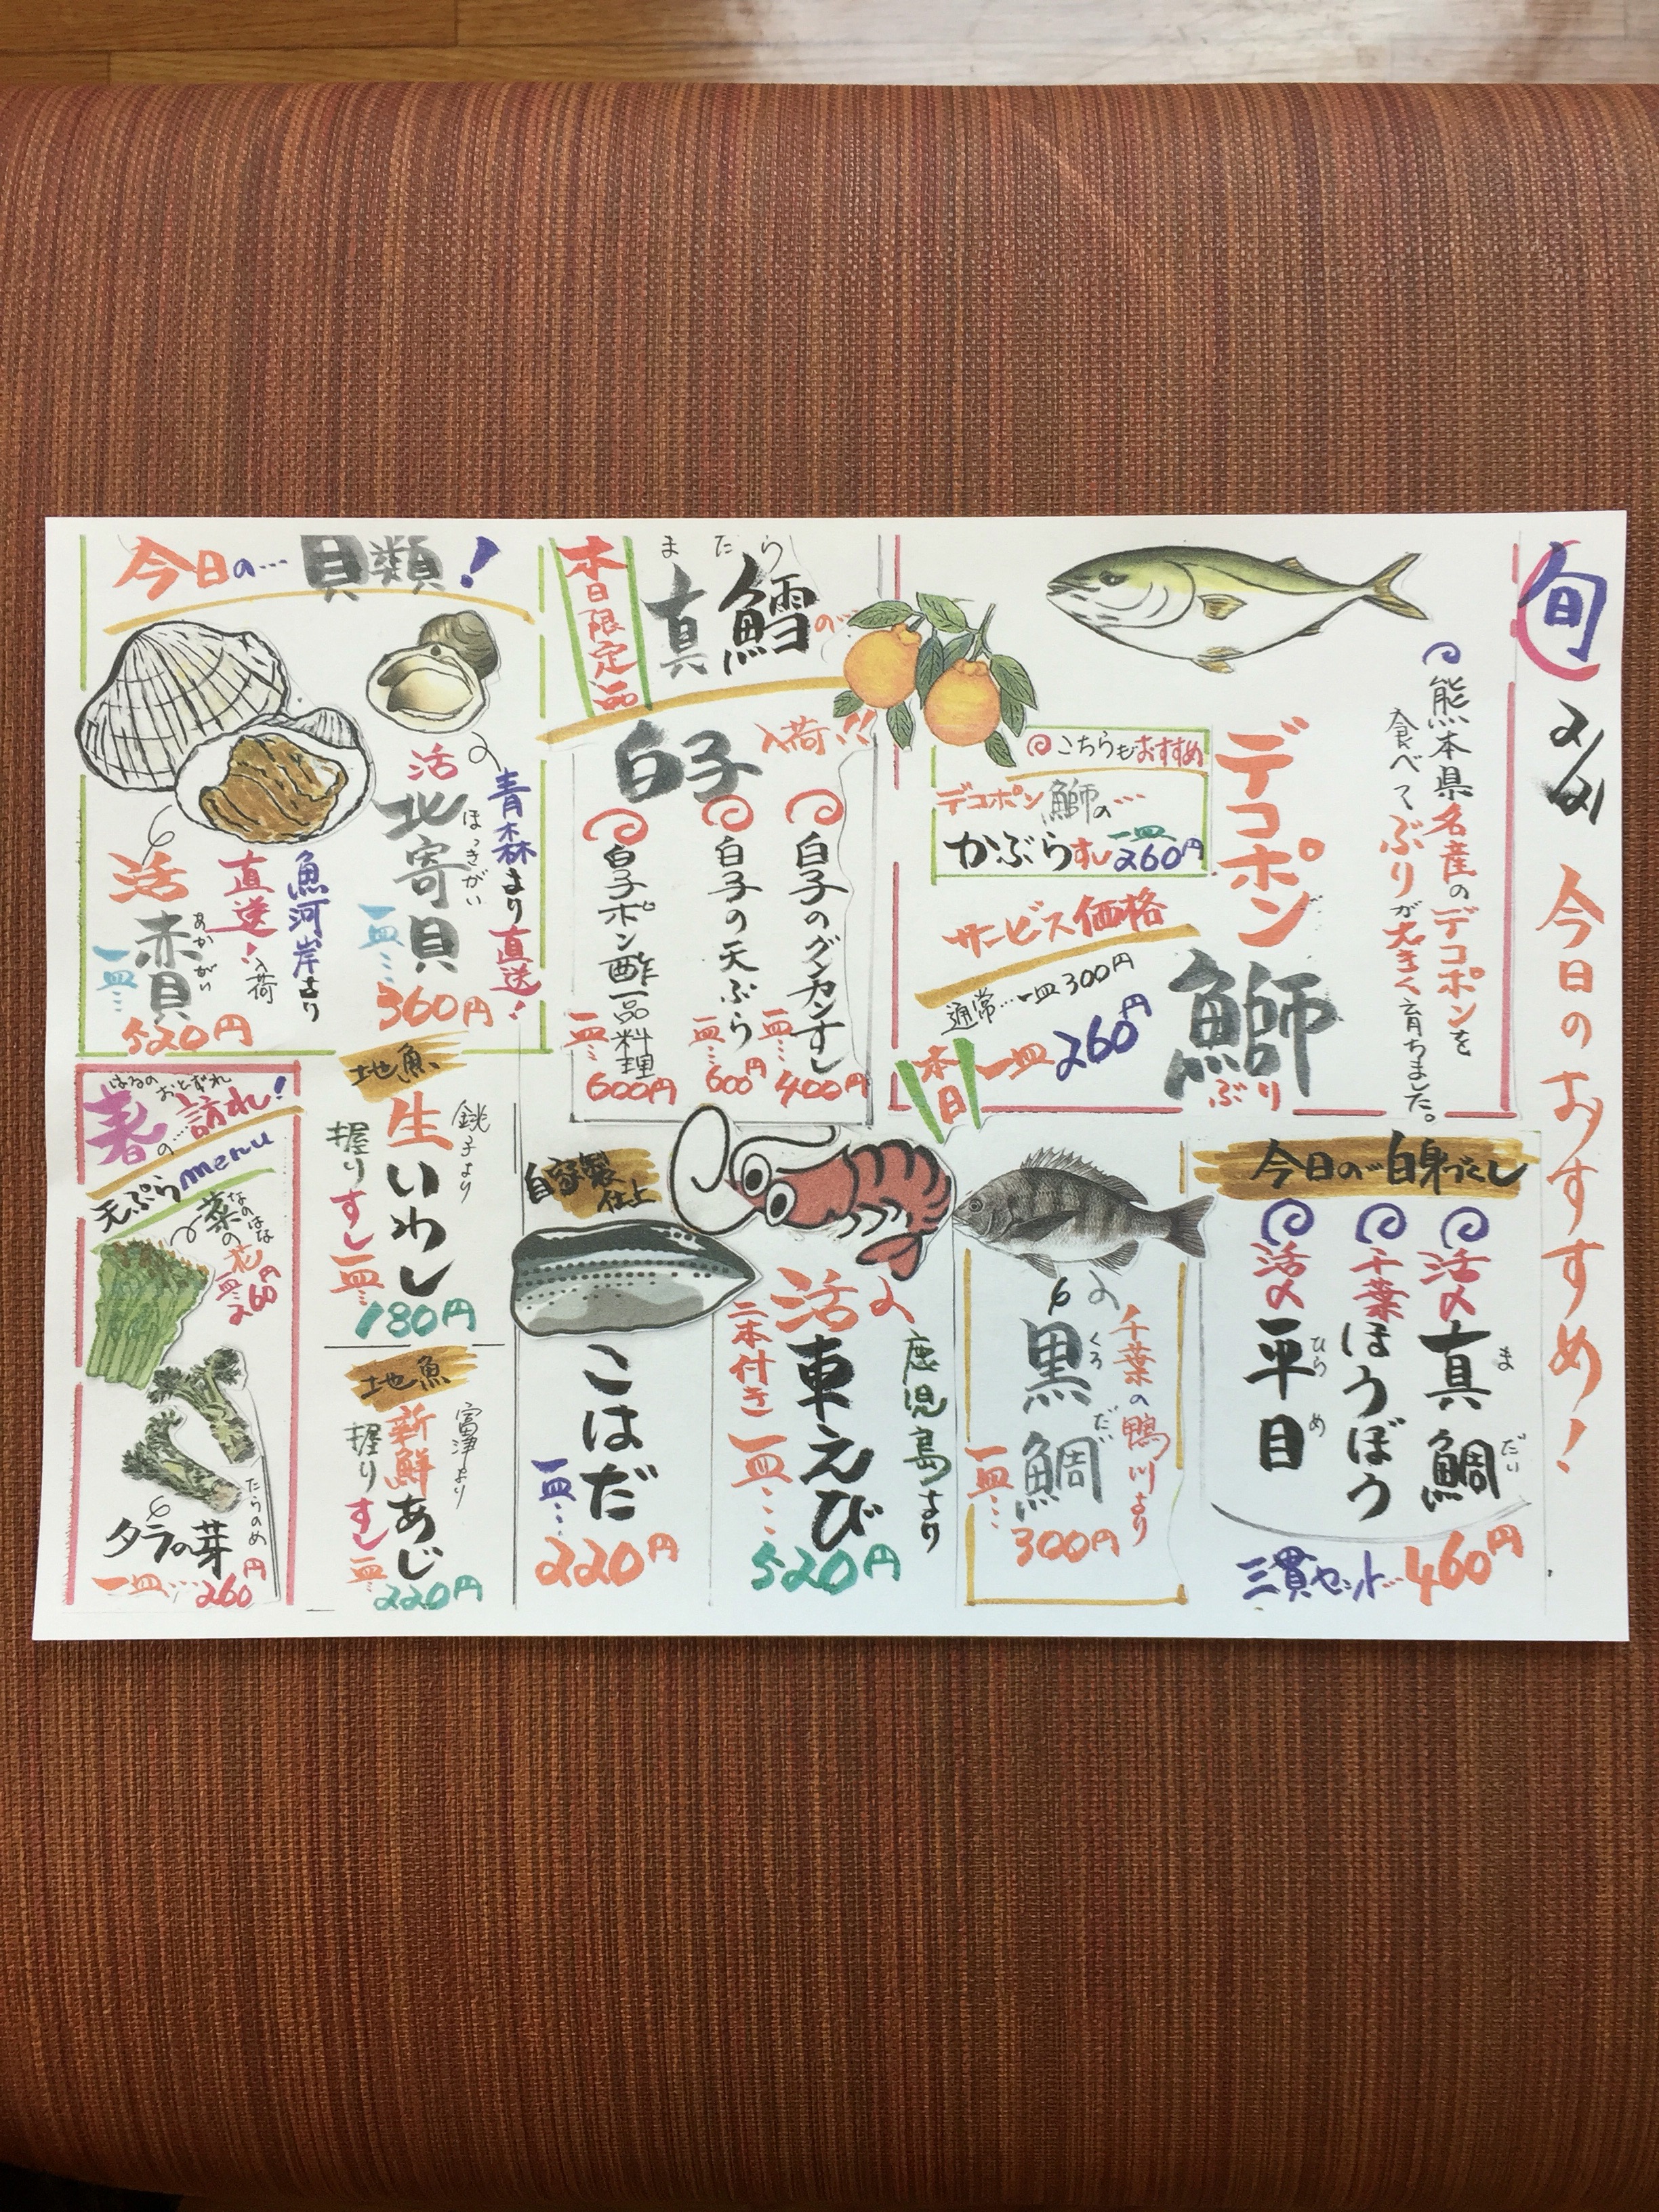 旬
2/21
今日のおすすめ!
熊本県名産のデコポンを
食べてぶりが大きく育ちました。
デコポン
鰤
ぶり
こちらもおすすめ
デコポン鰤の…
かぶらすし一皿260円
サービス価格
通常…一皿300円
本日一皿260円
本日限定品
またら
真鱈の…
白子
入荷!!
白子のグンカンすし
一皿…400円
白子の天ぷら
一皿…600円
白子ポン酢一品料理
一皿…600円
今日の…貝類!
青森より直送!
活
北寄貝
ほっきがい
一皿…360円
魚河岸より
直送!入荷
活
赤貝
あかがい
一皿…520円
今日の…白身づくし
活〆真鯛
まだい
千葉ほうぼう
活〆平目
ひらめ
三貫セット…460円
千葉の鴨川より
黒鯛
くろだい
一皿…300円
鹿児島より
活車えび
二本付き一皿…
520円
自家製
仕上
こはだ
一皿…220円
地魚
銚子より
生いわし
握りすし一皿…
180円
地魚
富津より
新鮮あじ
握りすし一皿…
220円
はるのおとずれ
春の…訪れ!
天ぷらmenu
菜の花
なのはな
一皿…260円
タラの芽
たらのめ
一皿…260円